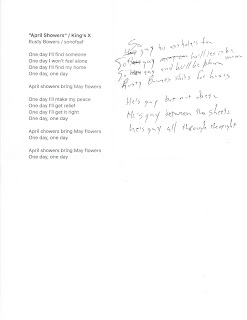 "April Showers" / King's X
Rusty Bowers / sonofsaf
One day I'll find someone
One day I won't feel alone
One day I'll find my home
One day, one day
April showers bring May flowers
One day I'll make my peace
One day I'll get relief
One day I'll get it right
One day, one day
April showers bring May flowers
One day, one day
April showers bring May flowers
One day, one day
So gay
So gay
So gay and he'll be
Rusty Bowers
He's gay but not
He's gay between the sheets
he's gay all through the night